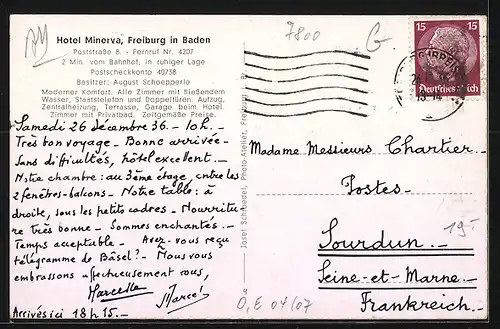 Hotel Minerva, Freiburg in Baden
Poststraße 8. - Fernruf Nr. 4207
2 Min. vom Bahnhof, in ruhiger Lage
Postscheckkonto 40738
Besitzer: August Schoepperle
Moderner Komfort. Alle Zimmer mit fließendem
Wasser, Staatstelefon und Doppeltüren. Aufzug,
Zentralheizung, Terrasse, Garage beim Hotel.
Zimmer mit Privatbad. Zeitgemäße Preise.
Samedi 26 décembre 36. - 10h. -
Très bon voyage - Bonne arrivée -
Sans difficultés, hôtel excellent. -
Notre chambre : au 3ème étage, entre les
2 fenêtres-balcons - Notre table : à
droite, sous les petits cadres - Nourritu
re très bonne - Sommes enchantés. -
Temps acceptable - Avez-vous reçu
télégramme de Bâsel ? - Nous vous
embrassons affectueusement tous,
Marcelle
Marcel
Arrivés ici 18 h 15. -
Josef Schroedel, Photo-Atelier, Freiburg i. Br.
7800
15 15
Deutsches Reich
Madame Messieurs Chartier.
Postes.
Sourdun. -
Seine-et-Marne.
Frankreich. -
19.-
O, E 04/07